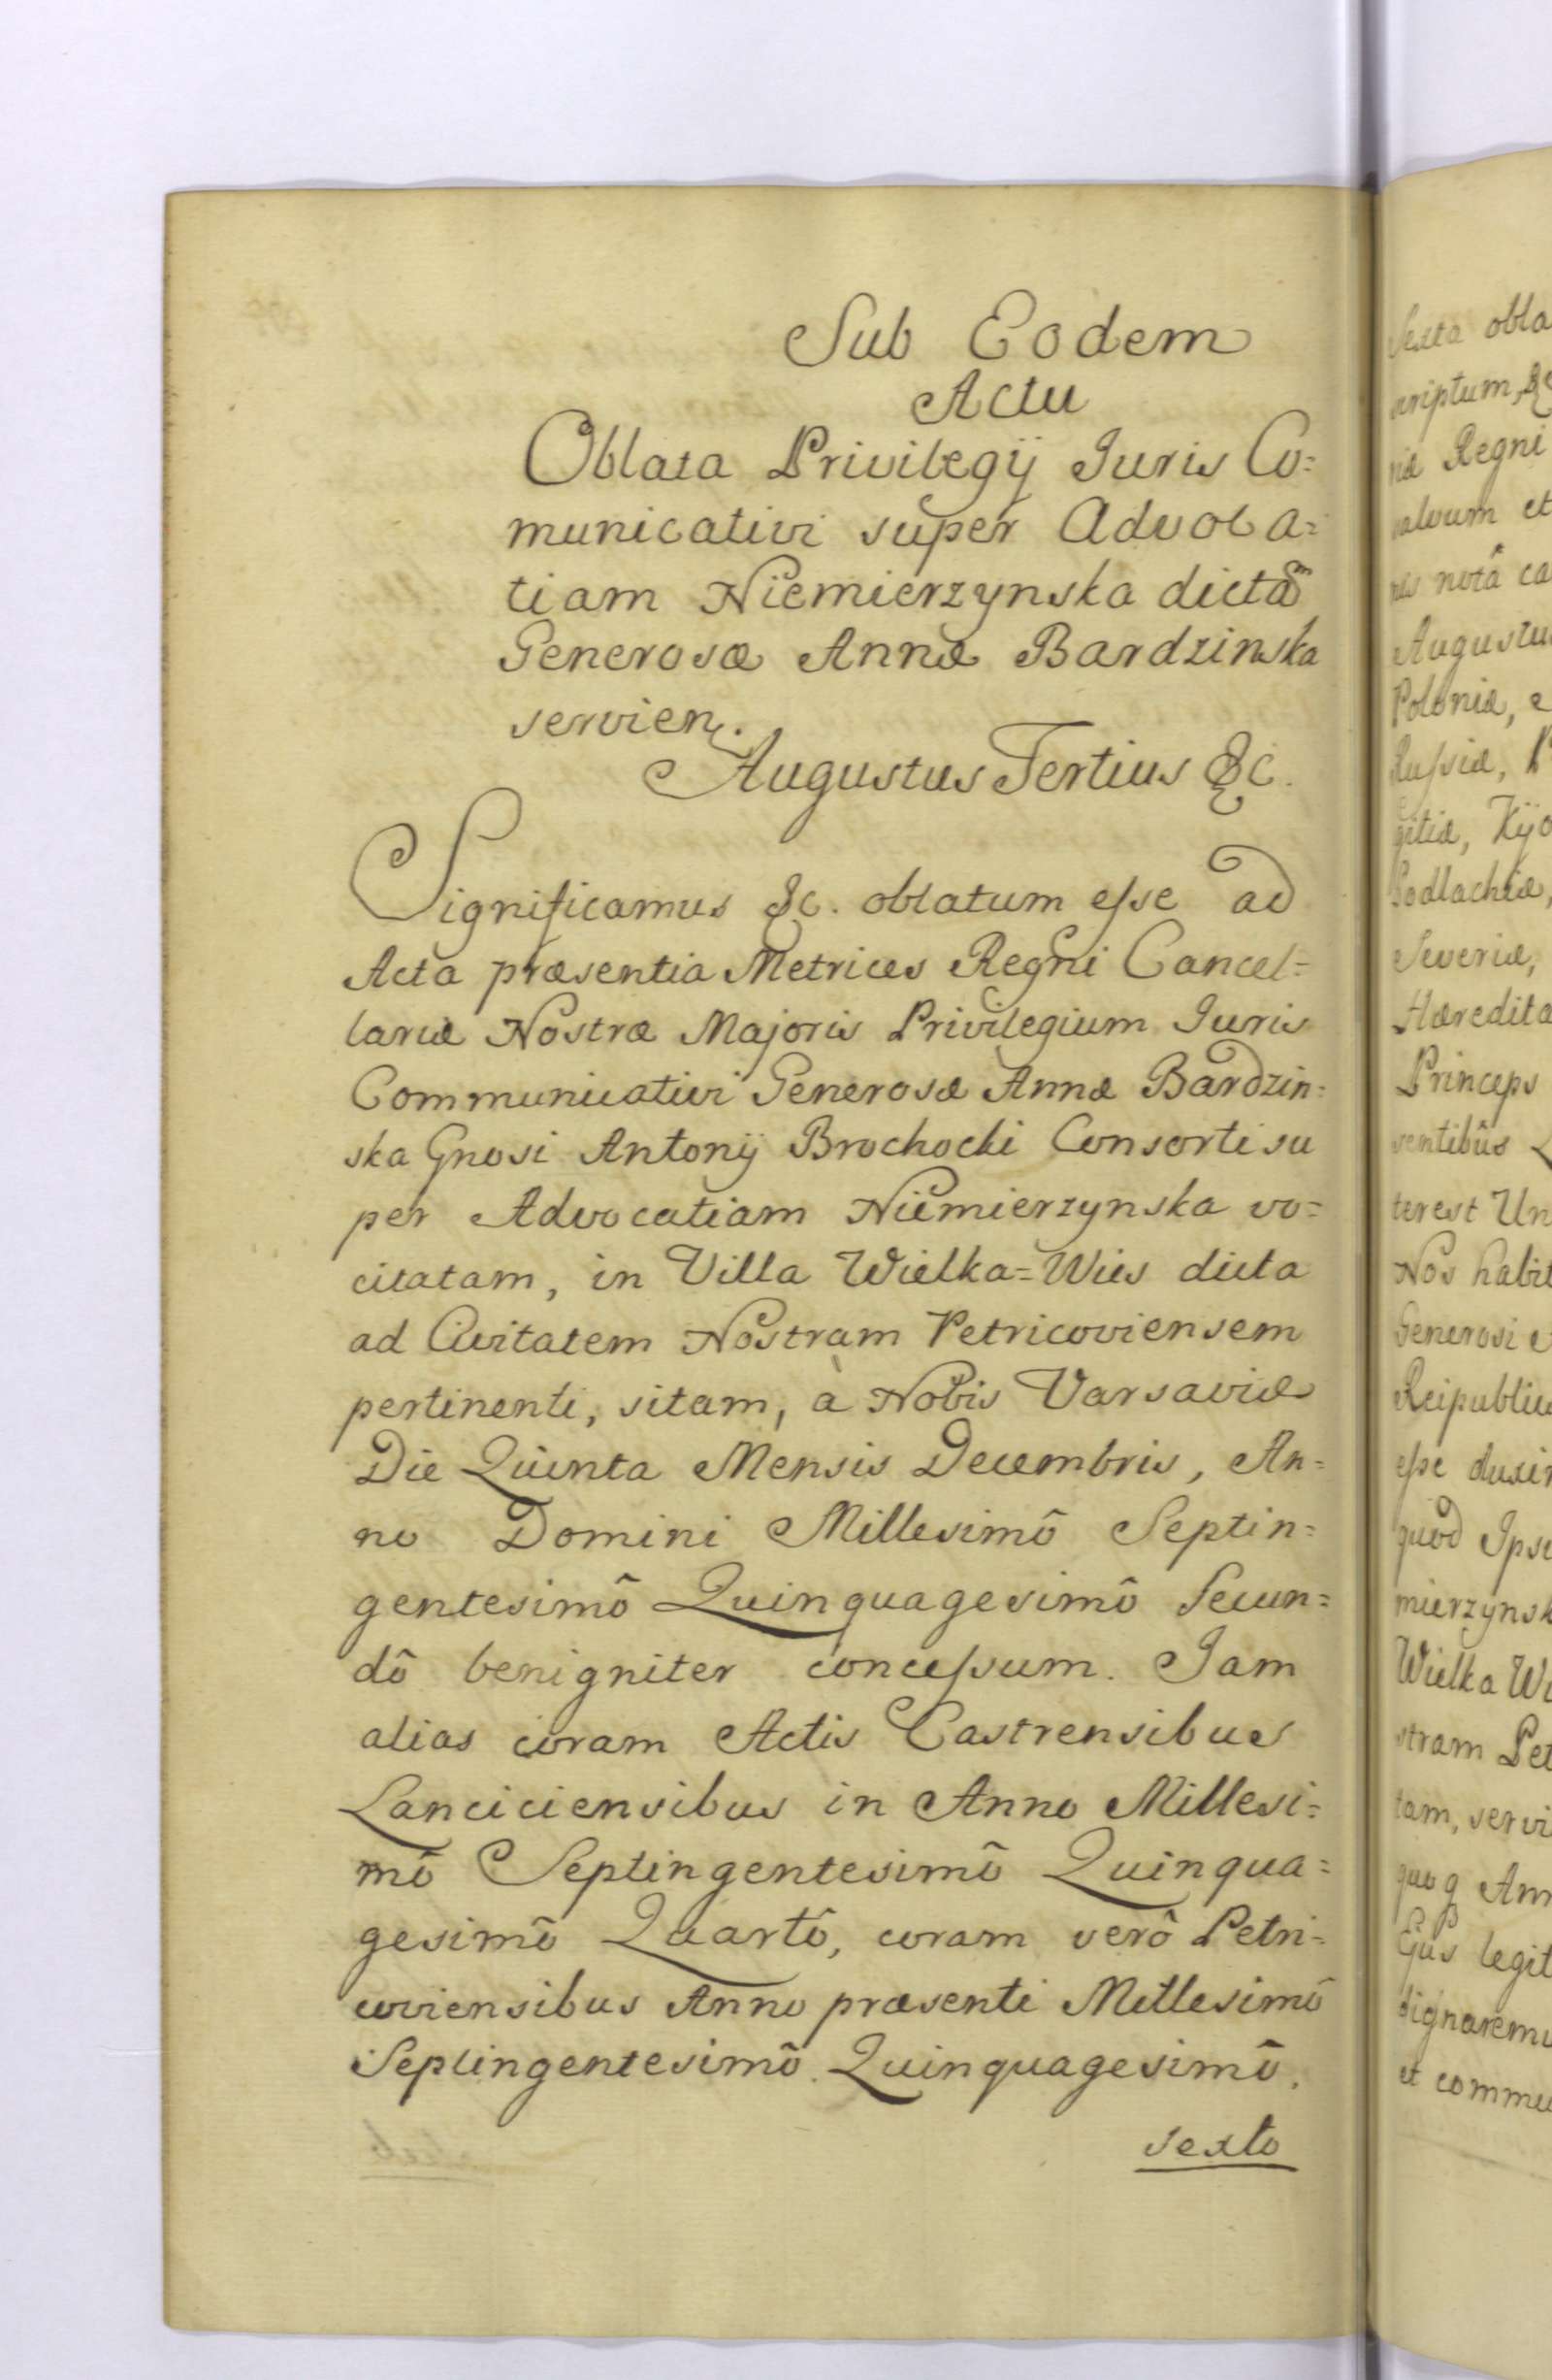 Sub Eodem
Actu
Oblata Privilegij Iuris Co=
municativi super Advoca=
tiam Niemierzynska dictam
Generosæ Annæ Bardzinska
servien.
Augustus Tertius &c.
Significamus &c. oblatum eſse ad
Acta præsentia Metrices Regni Cancel=
lariæ Nostræ Majoris Privilegium Iuris
Communicativi Generosæ Annæ Bardzin=
ska Gnosi Antonij Brochocki Consorti su
per Advocatiam Niemierzynska vo=
citatam, in Villa Wielka=Wies dicta
ad Civitatem Nostram Petricoviensem
pertinenti, sitam, à Nobis Varsaviæ
Die Quinta Mensis Decembris, An=
no Domini Millesimô Septin=
gentesimô Quinquagesimô Secun=
dô benigniter conceſsum. Iam
alias coram Actis Castrensibus
Lanciciensibus in Anno Millesi=
mô Septingentesimô Quinqua=
gesimô Quartô, coram verô Petri=
coviensibus Anno præsenti Millesimô
Septingentesimô Quinquagesimô.
sexto
Sexta obla
scriptum, &
niæ Regni
salvum et
nus notâ ca
Augustu
Poloniæ, e
Ruſsiæ, P
gitiæ, Kijo
Podlachiæ,
Severiæ,
Hæredita
Princeps
sentibûs
terest Un
Nos habit
Generosi e
Reipublicæ
eſse duxir
quod Ipsi
mierzynsk
Wielka Wi
stram Pet
tam, servi
quoq Ann
Ejus legit
dignaremu
et commu